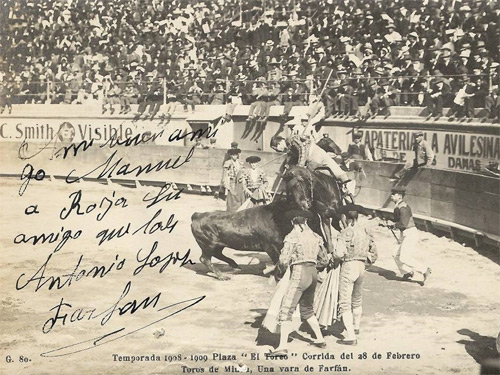 C. Smith Visible
ZAPATERIA LA AVILESINA
DAMAS
A mi querido ami
go Manuel
a Borja Su
amigo que lo es
Antonio Lopez
Farfan
G. 80.
Temporada 1908 - 1909 Plaza "El Toreo" Corrida del 28 de Febrero
Toros de Miura, Una vara de Farfán.